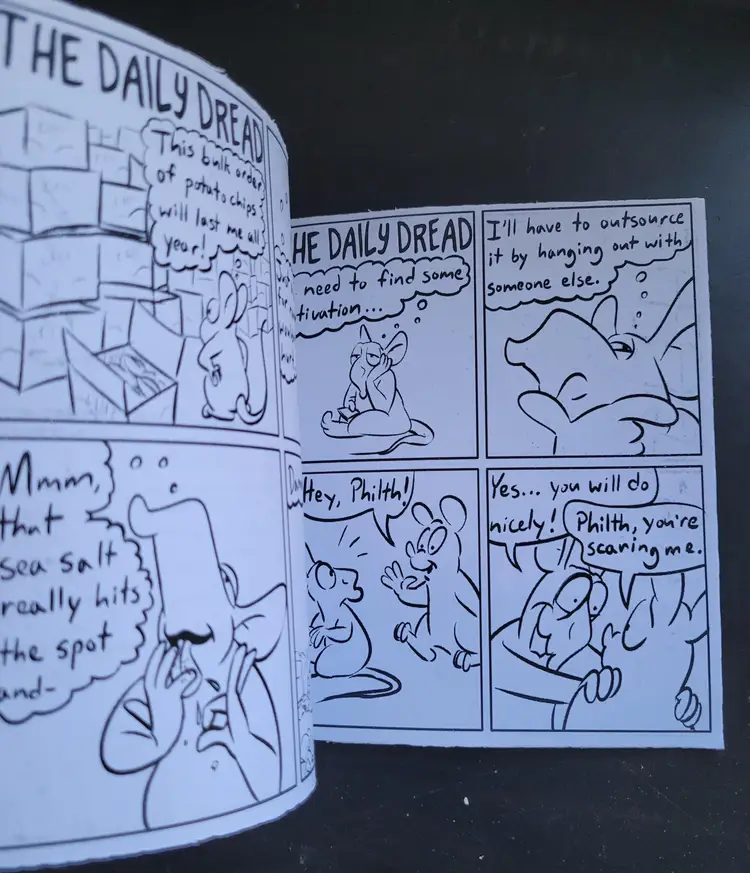 THE DAILY DREAD
This bulk order
of potato chips
will last me all
year!
Mmm,
that
sea salt
really hits
the spot
and-
HE DAILY DREAD
need to find some
tivation...
I'll have to outsource
it by hanging out with
someone else.
Hey, Philth!
Yes... you will do
nicely!
Philth, you're
scaring me.